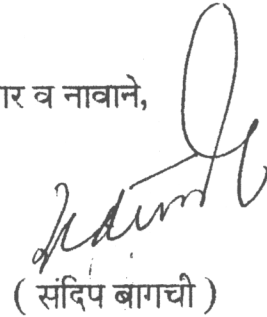 व नावाने,
( संदिप बागची )